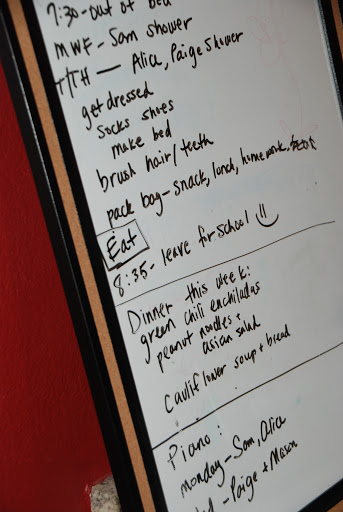 7:30-out of bed
MWF- Sam shower
T/TH — Alice, Paige Shower
get dressed
socks shoes
make bed
brush hair/teeth
pack bag-snack, lunch, homework,
Eat
8:35- leave for school
Dinner this week:
green chili enchiladas
peanut noodles +
asian salad
Cauliflower soup + bread
Piano:
monday-Sam, Alice
-Paige + Mason